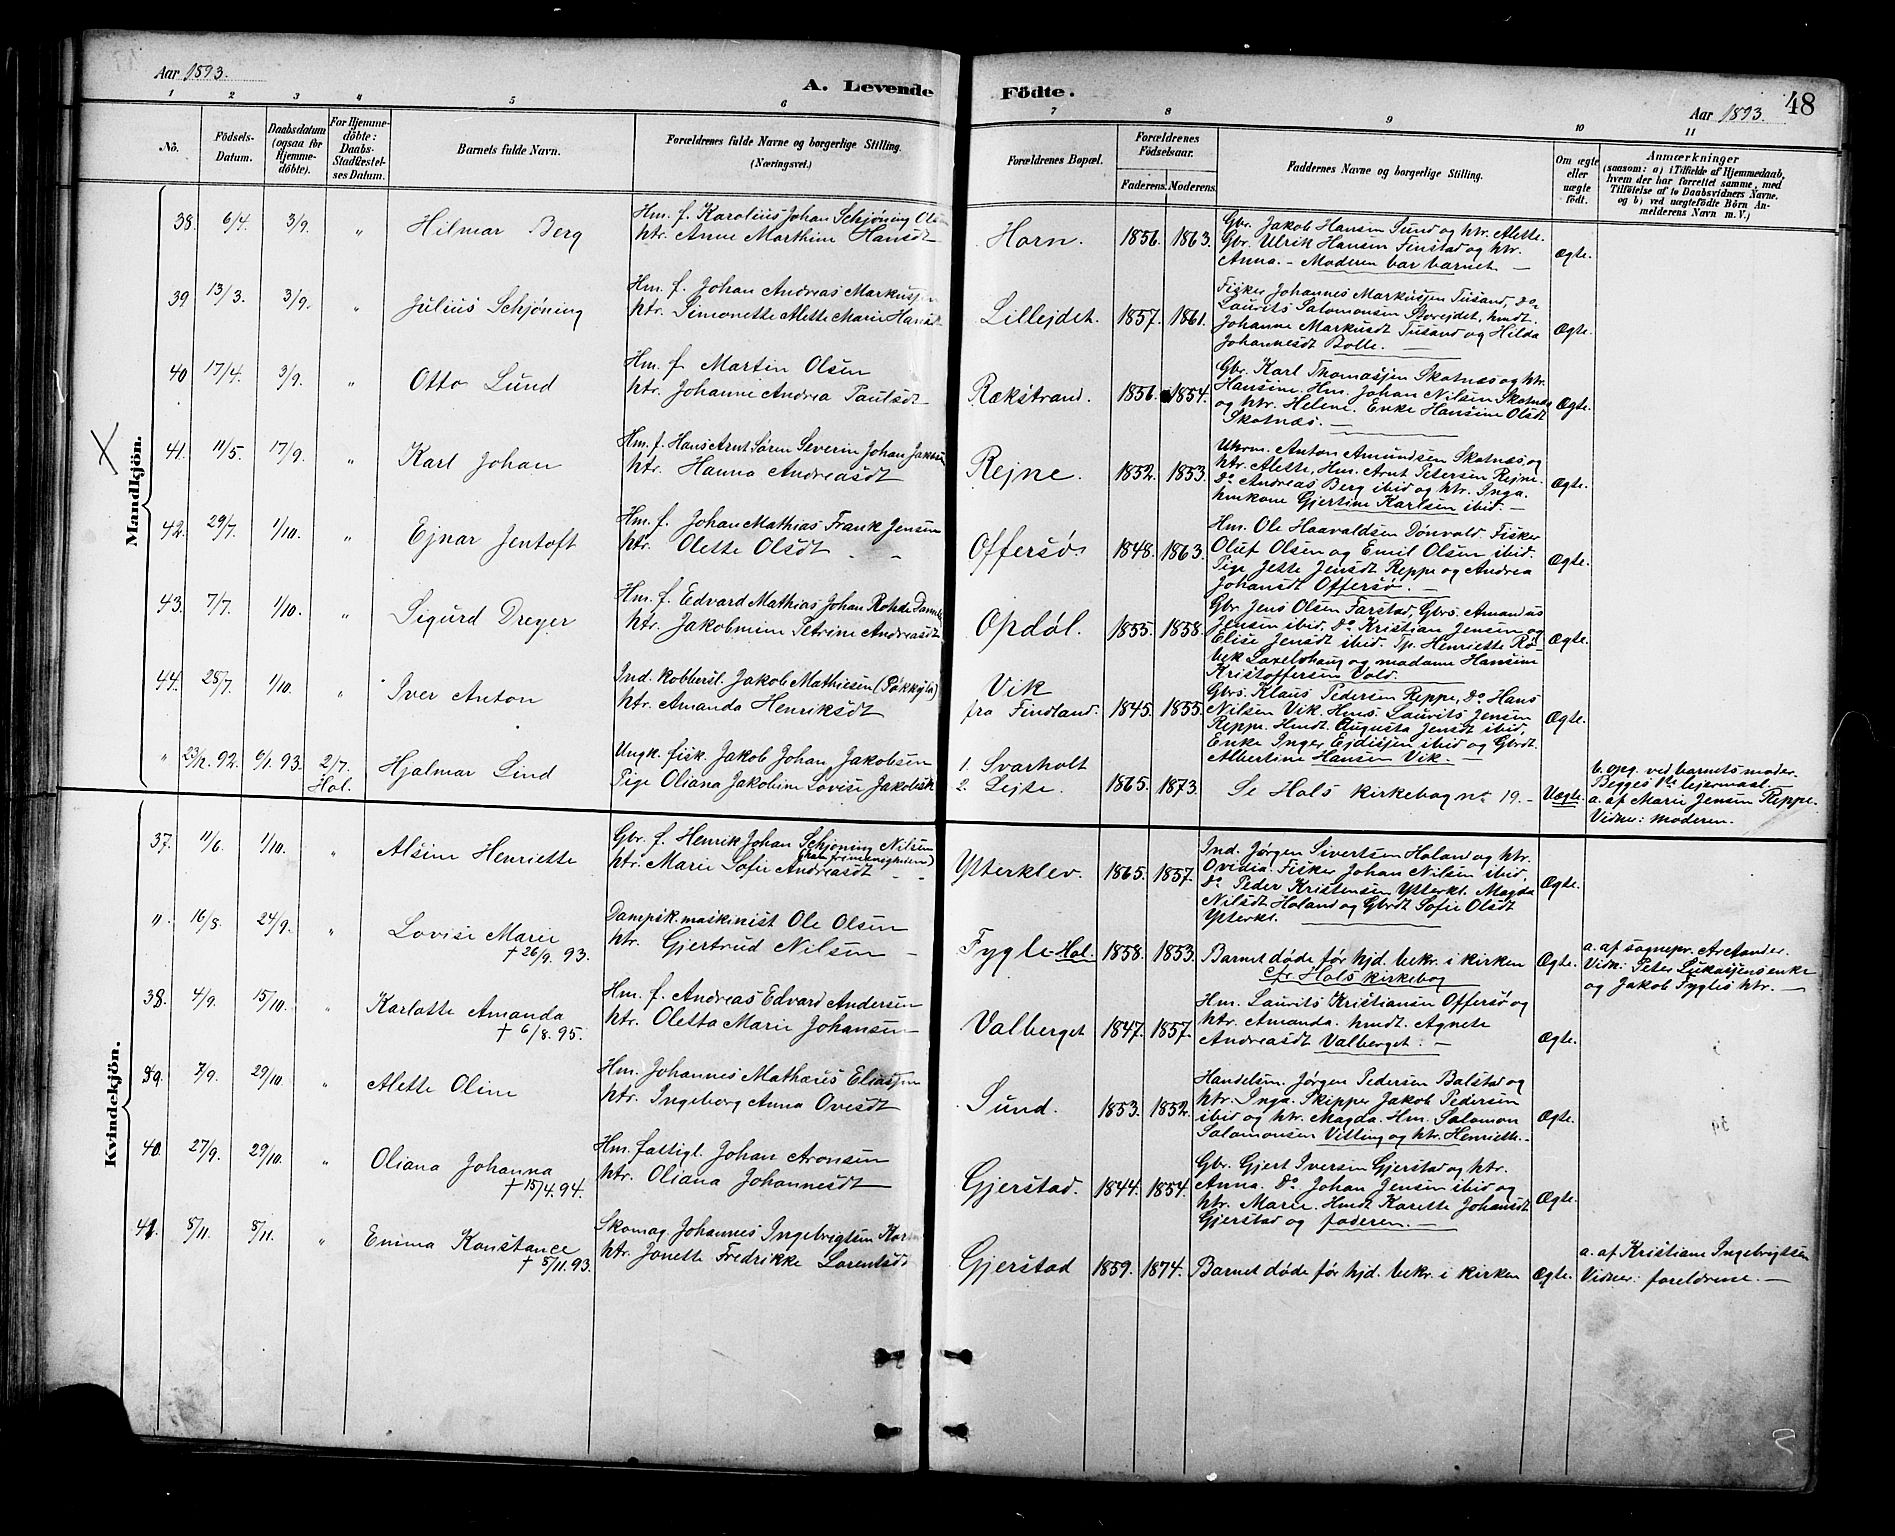 Aar 1893.
A. Levende Födte.
Aar 1893. 48
1 2 3 4 5 6 7 8 9 10 11
No.
Födsels-Datum.
Daabsdatum (ogsaa for Hjemme-döbte).
For Hjemme-döbte: Daabs-Stadfæstel-ses Datum.
Barnets fulde Navn.
Forældrenes fulde Navne og borgerlige Stilling.
(Næringsvei.)
Forældrenes Bopæl.
Forældrenes Födselsaar.
Faderens. Moderens.
Faddernes Navne og borgerlige Stilling.
Om ægte eller uægte födt.
Anmærkninger
(saasom: a) i Tilfælde af Hjemmedaab,
hvem der har forrettet samme, med
Tilföielse af to Daabsvidners Navne.
og b) ved uægtefödte Börn An-
melderens Navn m. V.)
Mandkjön.
38. 6/4. 3/9. " Hilmar Berg
Hm. f. Karolius Johan Schjøning
htr. Anne Marthine Hansdt
Horn. 1856. 1863.
Gbr. Jakob Hansen Sund og htr. Alette.
Gbr. Ulrik Hansen Finstad og htr.
Anna. - Moderen bar barnet. -
Ægte.
39 13/3. 3/9. " Julius Schjøning
Hm. f. Johan Andreas Markussen
htr. Simonette Alette Marie Hansdt
Lillejdet. 1857. 1861.
Fisker Johannes Markussen Tusand, Do
Laurits Salomonsen Storejdet, hmdt.
Johanne Markusdt Tusand og Hilda
Johannesdt Bolle. -
Ægte.
40 17/4. 3/9. " Otto Lund
Hm. f. Martin Olsen
htr. Johanne Andrea Paulsdt
Rækstrand. 1856. 1854.
Gbr. Karl Thomassen Skotnæs og htr.
Hansine. Hm. Johan Nilsen Skotnæs
og htr. Helene. Enke Hansine Olsdt
Skotnæs. -
Ægte.
41. 11/5. 17/9. " Karl Johan
Hm. f. Hans Arnt Søren Severin Johan Jakobsen
htr. Hanna Andreasdt
Rejne. 1852. 1853.
Uhrm. Anton Amundsen Skotnæs og
htr. Alette, Hm. Arnt Petersen Rejne.
Do Andreas Berg ibid og htr. Inga.
hmkone Gjertine Karlsen ibid. -
Ægte.
42. 29/7. 1/10. " Ejnar Jentoft
Hm. f. Johan Mathias Frank Jensen
htr. Olette Olsdt - -
Offersø. 1848. 1863.
Hm. Ole Haavaldsen Dønvold. Fisker
Oluf Olsen og Emil Olsen ibid.
Pige Jette Jensdt Reppe og Andrea
Johansdt Offersø. -
Ægte.
43. 7/7. 1/10. " Sigurd Dreyer
Hm. f. Edvard Mathias Johan Rohde
htr. Jakobmine Petrine Andreasdt
Opdøl. 1855. 1858.
Gbr. Jens Olsen Farstad, Gbrs. Amandus
Jensen ibid. Do Kristian Jensen og
Elise Jensdt ibid. Tp. Henriette Rø-
bek Saxelshaug og madame Hansine
Kristoffersen Vold.
Ægte.
44. 25/7. 1/10. " Iver Anton
Ind. kobbersl. Jakob Mathiesen
htr. Amanda Henriksdt
Vik
fra Findland. 1845. 1855.
Gbrs. Klaus Pedersen Reppe, Do Hans
Nilsen Vik. Hms. Laurits Jensen
Reppe. Hmdt. Augusta Jensdt ibid.
Enke Inger Ejdissen ibid og Gbrdt.
Albertine Hansen Vik. -
Ægte.
" 23/12. 92. 6/1. 93. 2/7. Hol. Hjalmar Lind
Ungk. fisk. Jakob Johan Jakobsen
Pige Oliana Jakobine Lovise Jakobsdt
1. Svarholt
2. Lejte. 1865. 1873.
Se Hols kirkebog no 19. -
Uægte.
b. opg. ved barnets moder.
Begges 1ste lejermaal.
a. af Marie Jensen Reppe.
Vidner: moderen.
Kvindekjön.
37. 11/6. 1/10. " Alsine Henriette
Gbr. f. Henrik Johan Schjøning Nilsen
htr. Marie Sofie Andreasdt - -
Ytterklev. 1865. 1857.
Ind. Jørgen Sivertsen Holand og htr.
Ovidia. Fisker Johan Nilsen ibid,
Do Peder Kristensen Ytterkl. Magda
Nilsdt Holand og Gbrdt Sofie Olsdt
Ytterkl.
Ægte.
". 16/8. 24/9. " Lovise Marie
† 26/9. 93.
Dampsk. maskinist Ole Olsen
htr. Gjertrud Nilsen -
Fygle Hol. 1858. 1853.
Barnet døde før hjd. bekr. i kirken
cfr Hols kirkebog
Ægte.
a. af sognepr. Arctander.
Vidn: Peter Lukassens enke
og Jakob Fygles htr. -
38. 4/9. 15/10. " Karlotte Amanda
† 6/8. 95.
Hm. f. Andreas Edvard Andersen
htr. Oletta Marie Johansen
Valberget 1847. 1857.
Hm. Laurits Kristiansen Offersø og
htr. Amanda. hmdt. Agnete
Andreasdt Valberget. -
Ægte.
39. 7/9. 29/10. " Alette Oline
Hm. Johannes Mathæus Eliassen
htr. Ingeborg Anna Ovesdt
Sund. 1853. 1852.
Handelsm. Jørgen Pedersen Balstad og
htr. Inga. Skipper Jakob Pedersen
ibid og htr. Magda. Hm. Salomon
Salomonsen Vitting og htr. Henriette.
Ægte.
40. 27/9. 29/10. " Oliana Johanna
† 15/4. 94.
Hm. fattigl. Johan Aronsen
htr. Oliana Johannesdt
Gjerstad. 1844. 1854.
Gbr. Gjert Iversen Gjerstad og htr.
Anna. Do Johan Jensen ibid og
htr. Marie. Hmdt Karette Johansdt
Gjerstad og faderen. -
Ægte.
41. 5/11. 5/11. " Emma Konstance
† 5/11. 93.
Skomag. Johannes Ingebrigtsen
htr. Jonette Fredrikke Lorentsdt
Gjerstad 1859. 1874.
Barnet døde før hjd. bekr. i kirken
Ægte.
a. af Kristiane Ingebrigtsen
Vidner: foreldrene. -